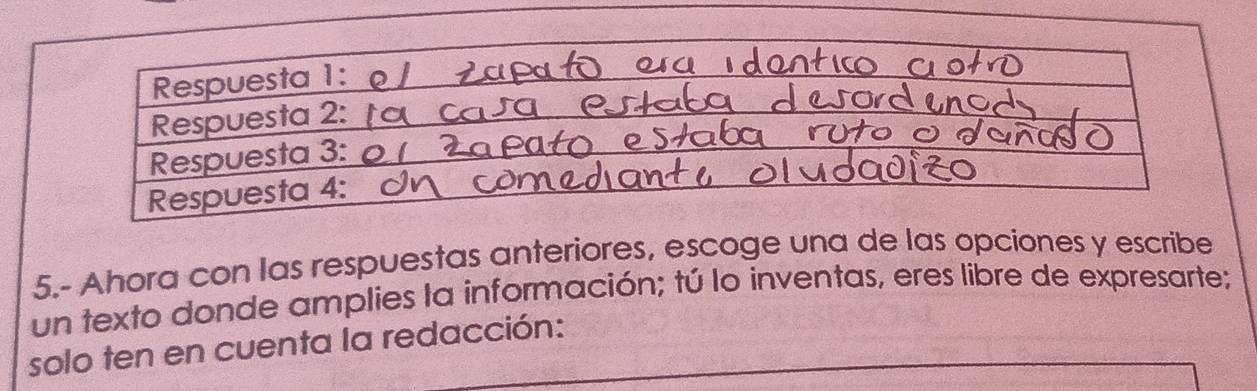 Respuesta 1: el zapato era identico a otro
Respuesta 2: la casa estaba desordenada
Respuesta 3: el zapato estaba roto o dañado
Respuesta 4: un comediante oludadizo
5.- Ahora con las respuestas anteriores, escoge una de las opciones y escribe
un texto donde amplies la información; tú lo inventas, eres libre de expresarte;
solo ten en cuenta la redacción: